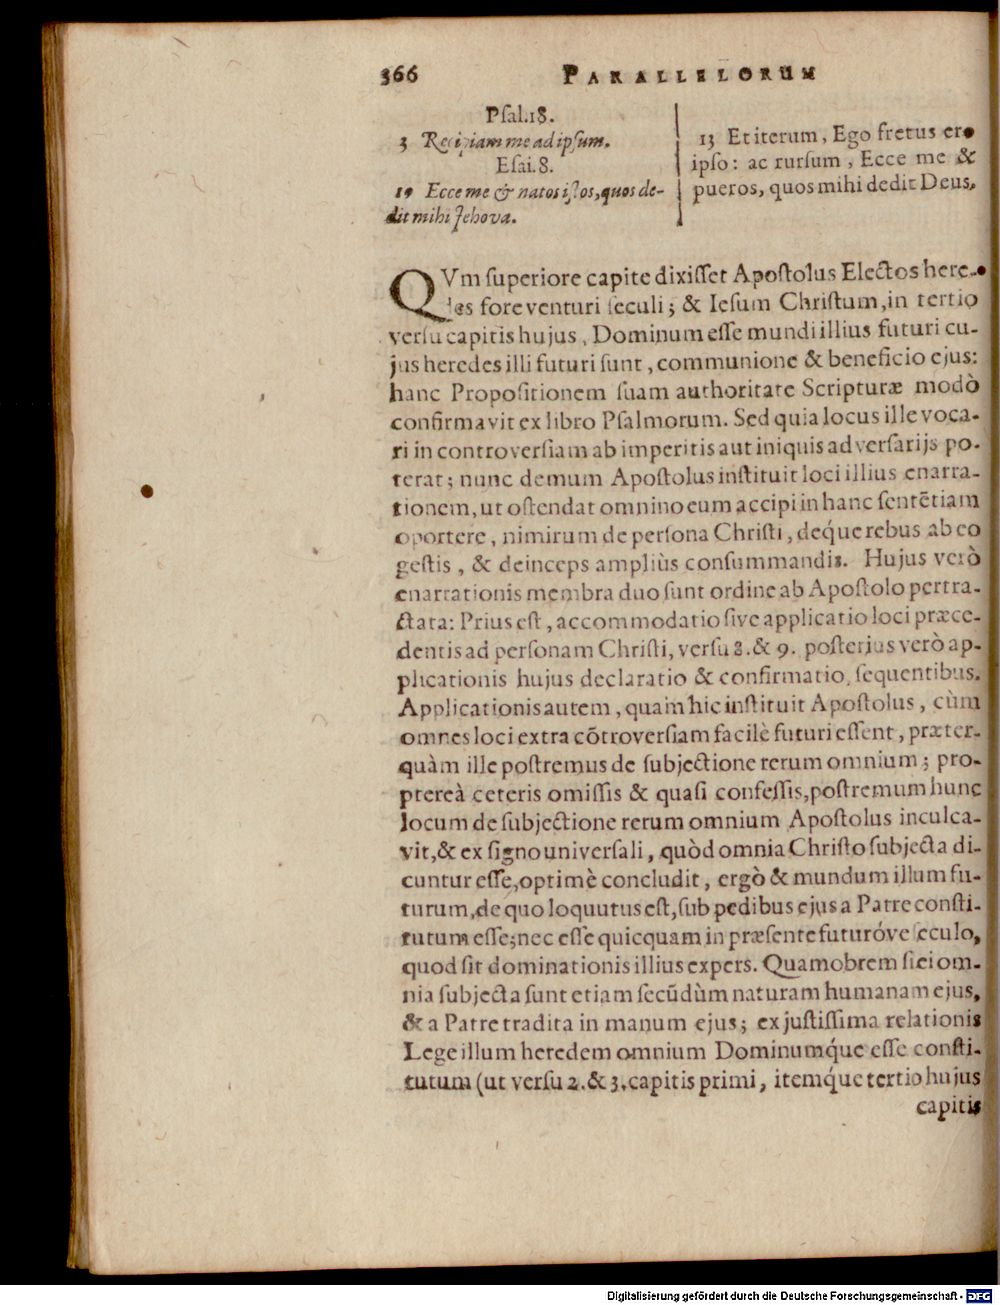 366 PARALLELORUM
Psal.18.
3 Recipiam me ad ipsum.
Esai.8.
19 Ecce me & natos istos, quos de-
dit mihi Jehova.
13 Et iterum, Ego fretus ero
ipso: ac rursum, Ecce me &
pueros, quos mihi dedit Deus.
QVm superiore capite dixisset Apostolus Electos here-
des fore venturi seculi; & Iesum Christum, in tertio
versu capitis hujus, Dominum esse mundi illius futuri cu-
jus heredes illi futuri sunt, communione & beneficio ejus:
hanc Propositionem suam authoritate Scripturæ modò
confirmavit ex libro Psalmorum. Sed quia locus ille voca-
ri in controversiam ab imperitis aut iniquis adversarijs po-
terat; nunc demum Apostolus instituit loci illius enarra-
tionem, ut ostendat omnino eum accipi in hanc sentētiam
oportere, nimirum de persona Christi, deq́ue rebus ab eo
gestis, & deinceps ampliùs consummandis. Hujus verò
enarrationis membra duo sunt ordine ab Apostolo pertra-
ctata: Prius est, accommodatio sive applicatio loci præce-
dentis ad personam Christi, versu 8. & 9. posterius verò ap-
plicationis hujus declaratio & confirmatio, sequentibus.
Applicationis autem, quam hic instituit Apostolus, cùm
omnes loci extra cōtroversiam facilè futuri essent, præter-
quàm ille postremus de subjectione rerum omnium; pro-
ptereà ceteris omissis & quasi confessis, postremum hunc
locum de subjectione rerum omnium Apostolus inculca-
vit, & ex signo universali, quòd omnia Christo subjecta di-
cuntur esse, optimè concludit, ergò & mundum illum fu-
turum, de quo loquutus est, sub pedibus ejus a Patre consti-
tutum esse; nec esse quicquam in præsente futuróve seculo,
quod sit dominationis illius expers. Quamobrem si ei om-
nia subjecta sunt etiam secūdùm naturam humanam ejus,
& a Patre tradita in manum ejus; ex justissima relationis
Lege illum heredem omnium Dominumq́ue esse consti-
tutum (ut versu 2. & 3. capitis primi, itemq́ue tertio hujus
capitis
Digitalisierung gefördert durch die Deutsche Forschungsgemeinschaft - DFG